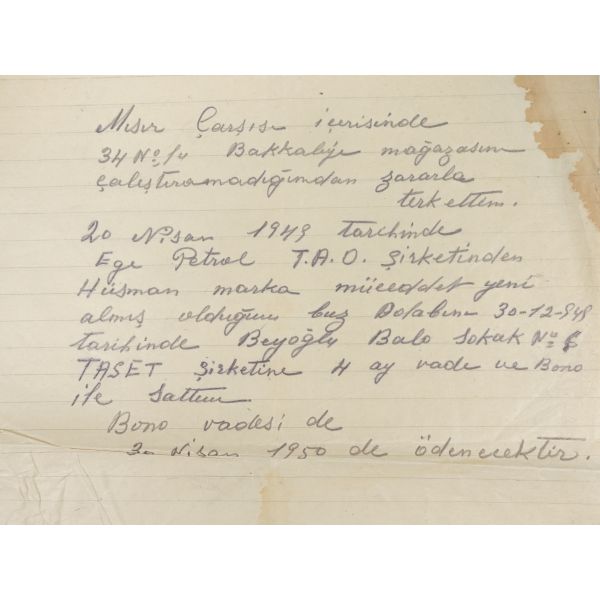 Mısır Çarşısı içerisinde
34 No. lı Bakkaliye mağazasını
çalıştıramadığımdan zararla
terkettim.
20 Nisan 1949 tarihinde
Ege Petrol T.A.O. Şirketinden
Hüsman marka müceddet yeni
almış olduğum buz Dolabını 30-12-949
tarihinde Beyoğlu Balo Sokak No 6
TASET Şirketine 4 ay vade ve Bono
ile Sattım
Bono vadesi de
30 Nisan 1950 de ödenecektir.